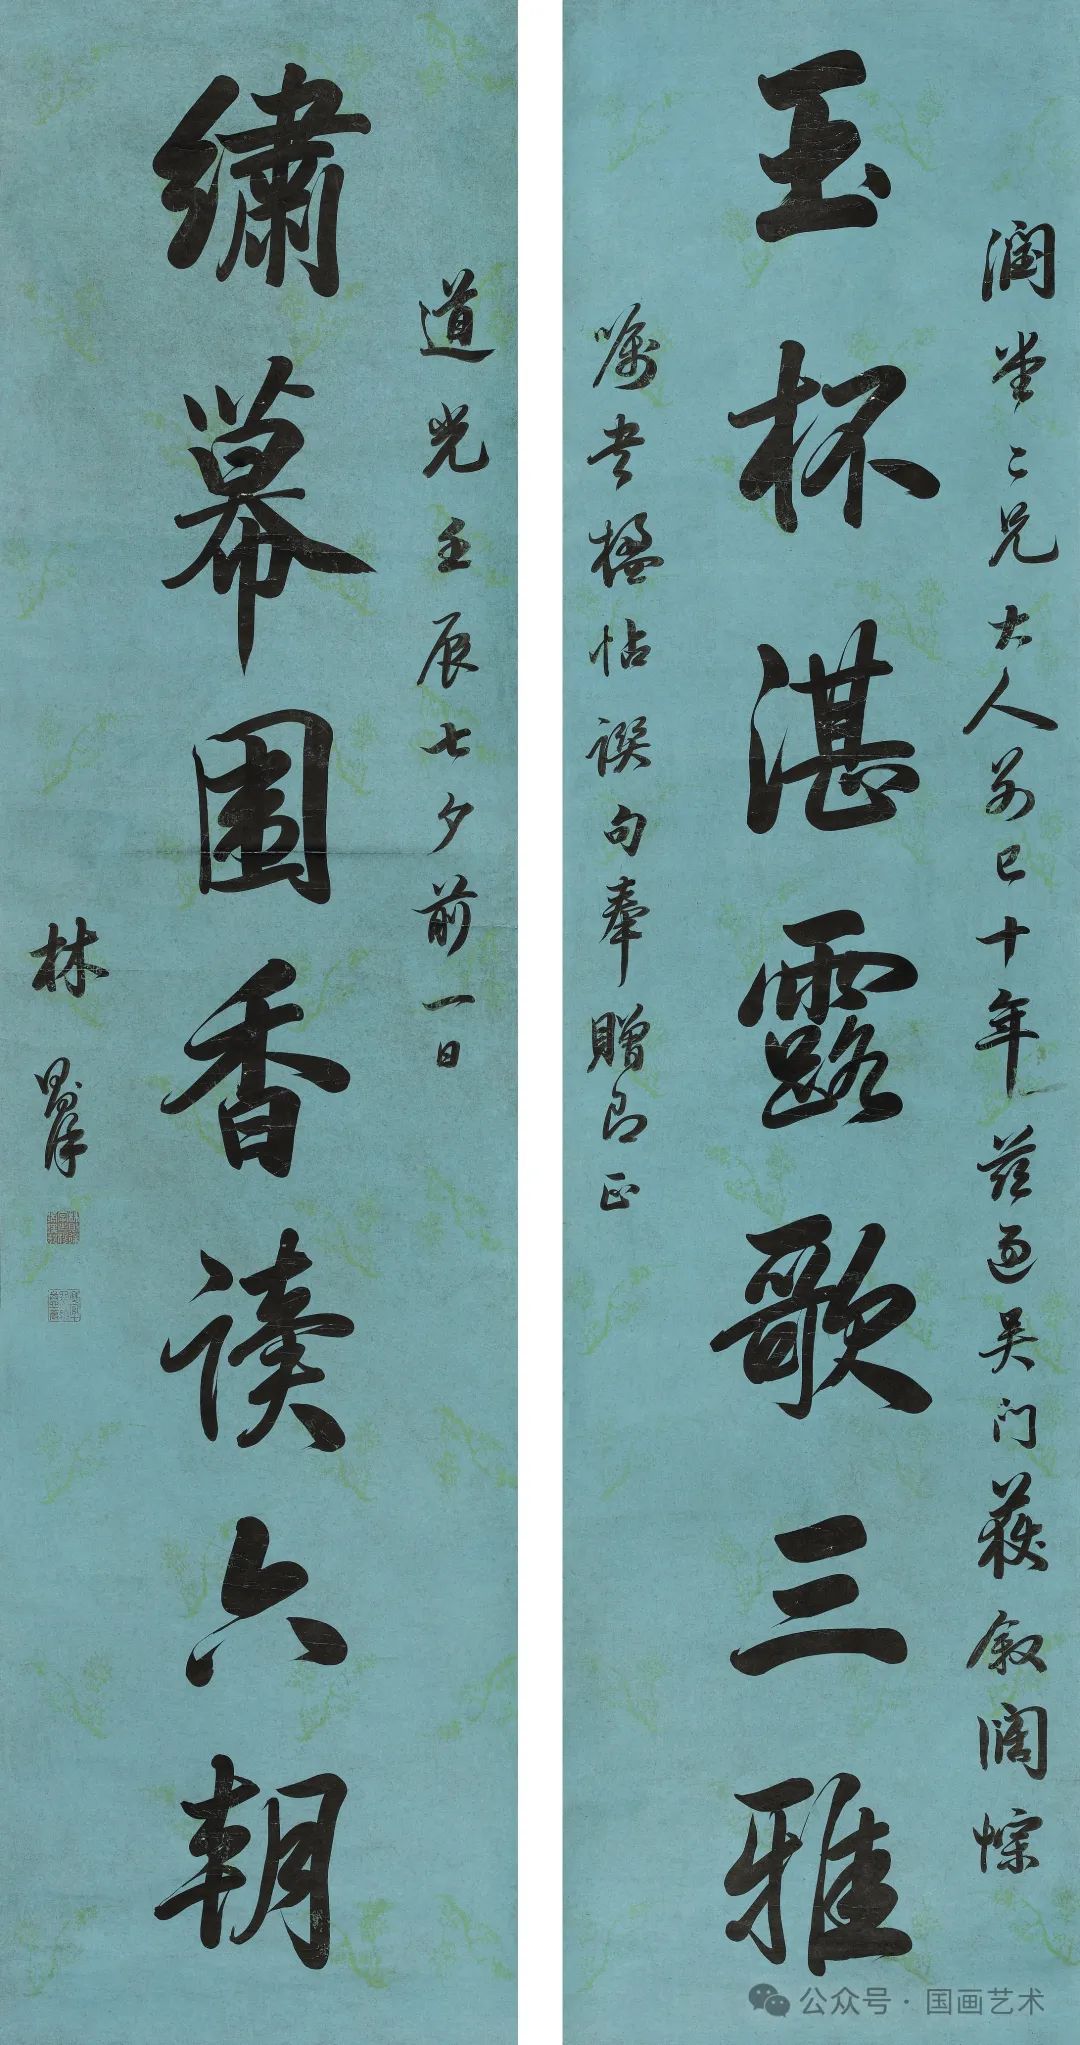 潤堂二兄大人別已十年茲過吳門獲敘闊悰
玉杯湛露歌三雅
囑書楹帖撰句奉贈即正
道光壬辰七夕前一日
繡幕圍香讀六朝
林則徐
公众号 · 国画艺术